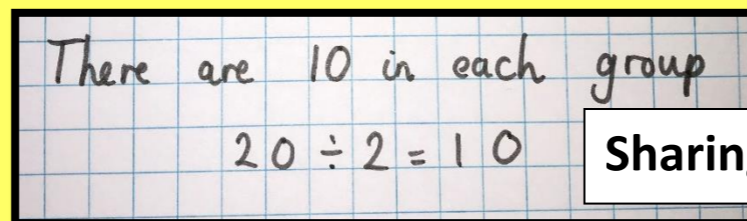 There are 10 in each group
20 ÷ 2 = 10
Sharin